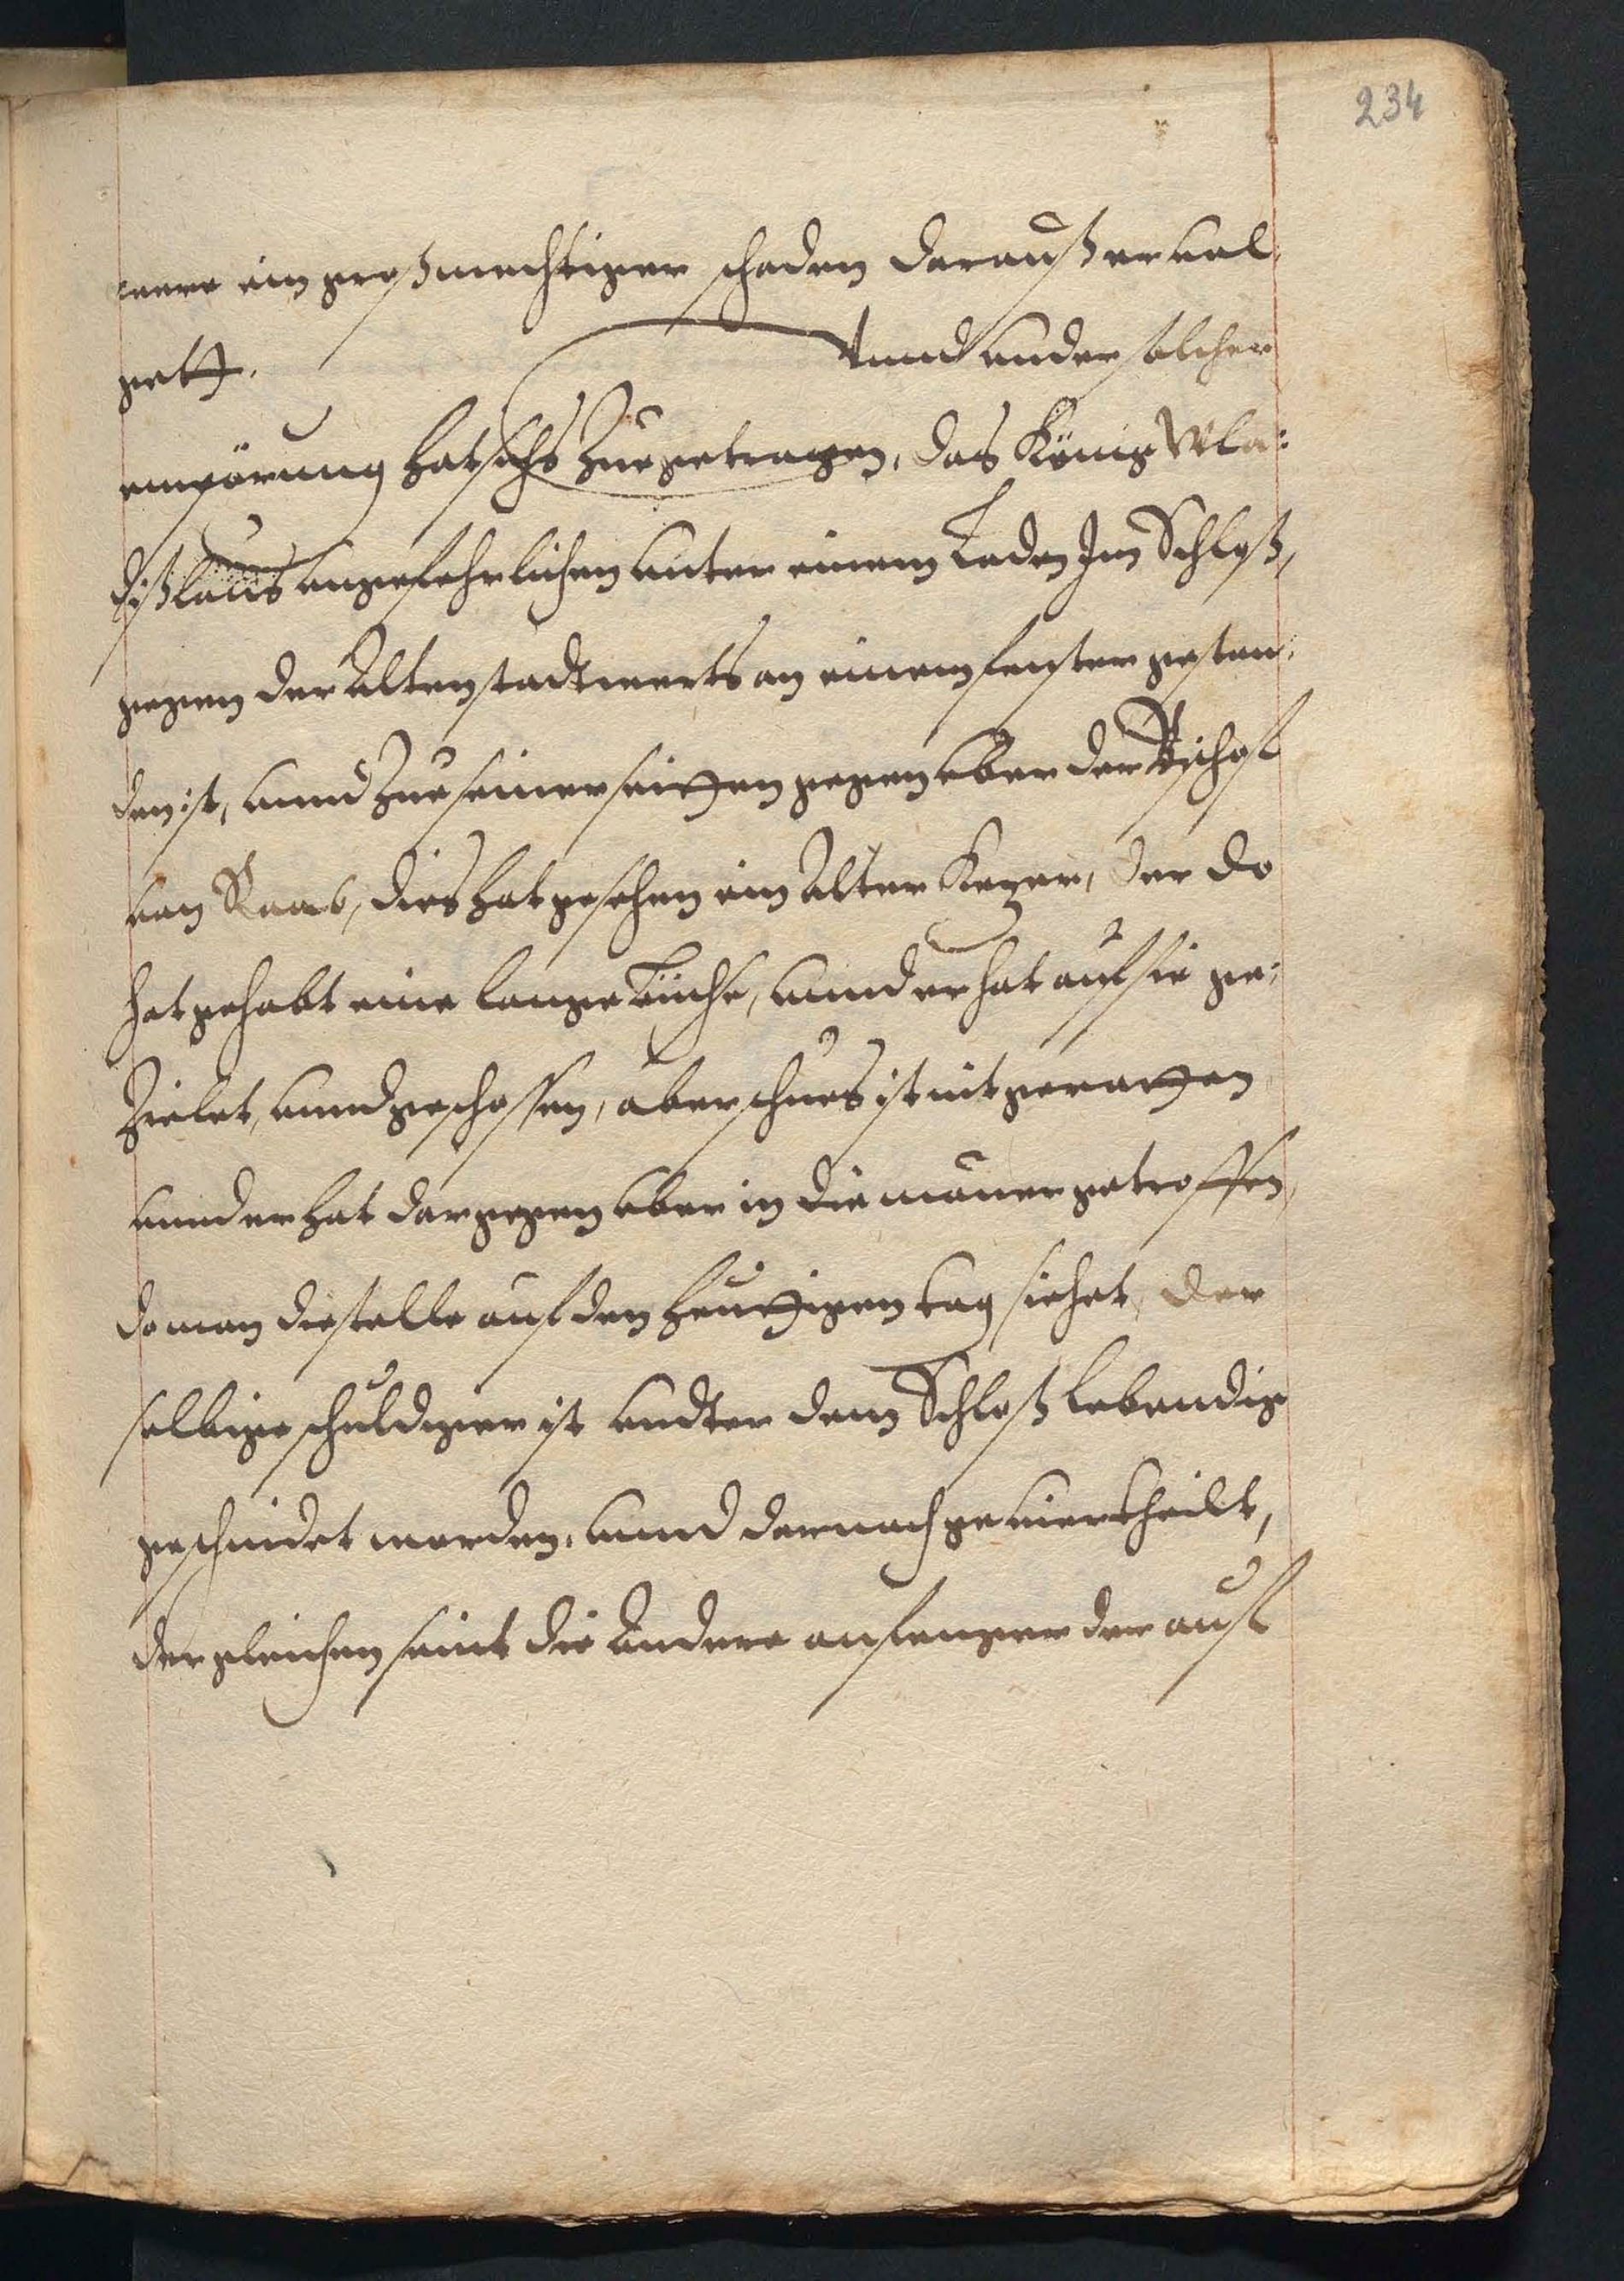 234
were ein großmechtiger schaden darauß ervol:
gett. Vnnd vnder solcher
empörung hat sichs zue getragen, das König Wla:
dißlaus vngefehrlichen vnter einem Laden Im Schloß,
gegen der Altenstadt werts an einem fenster gestan:
den ist, vnnd zue seiner seitten gegen vber der Bischof
von Raab, dies hat gesehen ein Alter Kezer, der do
hat gehabt eine lange büchse, vnnd er hat auf sie ge:
zielet, vnnd geschossen, aber schues ist nit geratten
vnnd er hat dargegen vber in die mauer getroffen,
do man die stelle auf den heuttigen tag siehet, der
selbige schuldiger ist vndter dem Schloß lebendig
geschindet worden, vnnd darnach geviertheilt,
dergleichen seint die Andere anfenger der auf